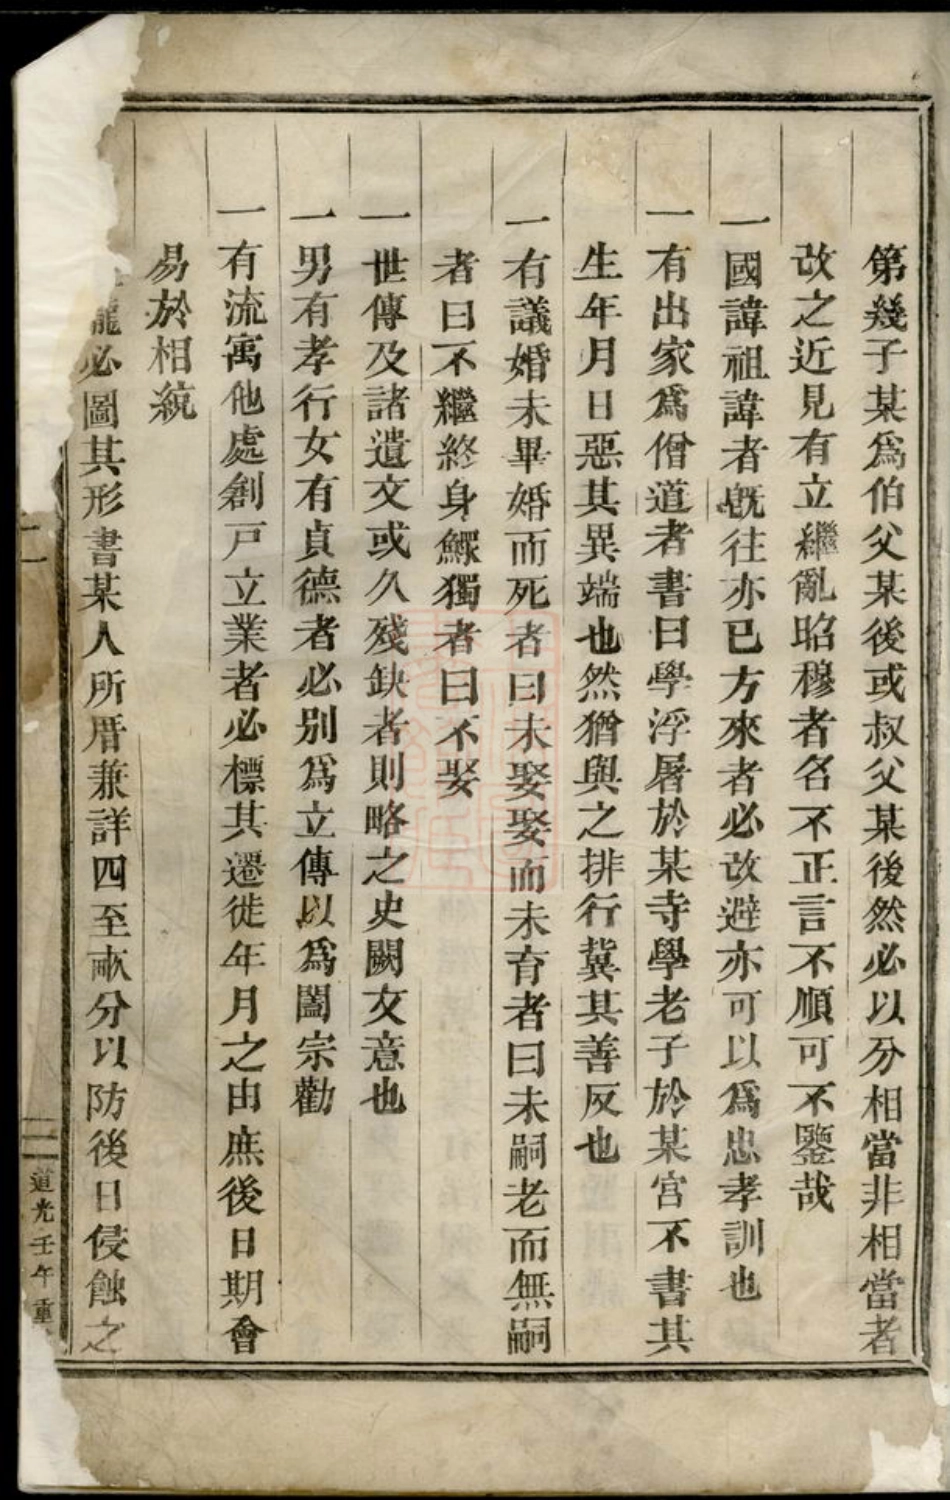 第幾子某爲伯父某後或叔父某後然必以分相當非相當者
改之近見有立繼亂昭穆者名不正言不順可不鑒哉
一國諱祖諱者旣往亦已方來者必改避亦可以爲忠孝訓也
一有出家爲僧道者書曰學浮屠於某寺學老子於某宮不書其
生年月日惡其異端也然猶與之排行冀其善反也
一有議婚未畢婚而死者曰未娶娶而未育者曰未嗣老而無嗣
者曰不繼終身鰥獨者曰不娶
一世傳及諸遺文或久殘缺者則略之史闕文意也
一男有孝行女有貞德者必別爲立傳以爲闔宗勸
一有流寓他處創戸立業者必標其遷徙年月之由庶後日期會
易於相統
必圖其形書某人所厝兼詳四至畝分以防後日侵蝕之
二
道光壬午重